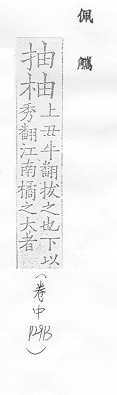 佩觽
抽柚上丑牛翻拔之也下以
秀翻江南橘之大者
(卷中 P.29B)